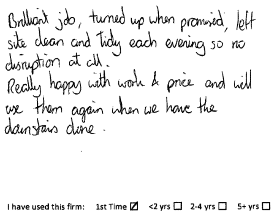 Brilliant job, turned up when promised, left
site clean and tidy each evening so no
disruption at all.
Really happy with work & price and will
use them again when we have the
downstairs done.
I have used this firm: 1st Time ☑ <2 yrs ☐ 2-4 yrs ☐ 5+ yrs ☐